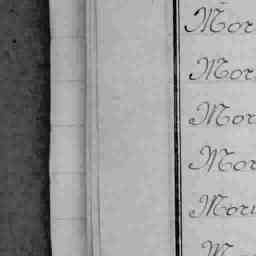 Mor
Mor
Mor
Mor
Mori
M